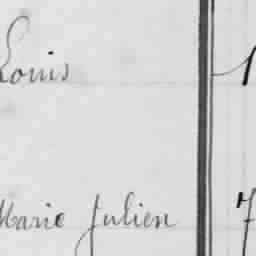 Louis 1
Marie Julien 7